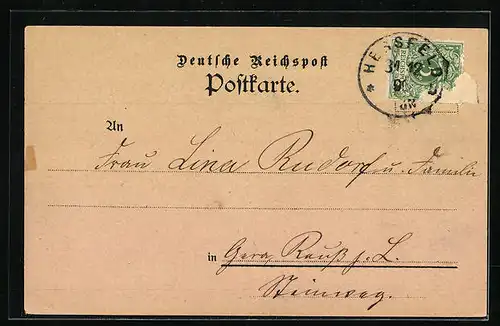 Deutsche Reichspost
Postkarte.
HERSFELD
31 12
An
Frau Lina Rudorf u. Familie
in Gera Reuß j. L.
Steinweg.